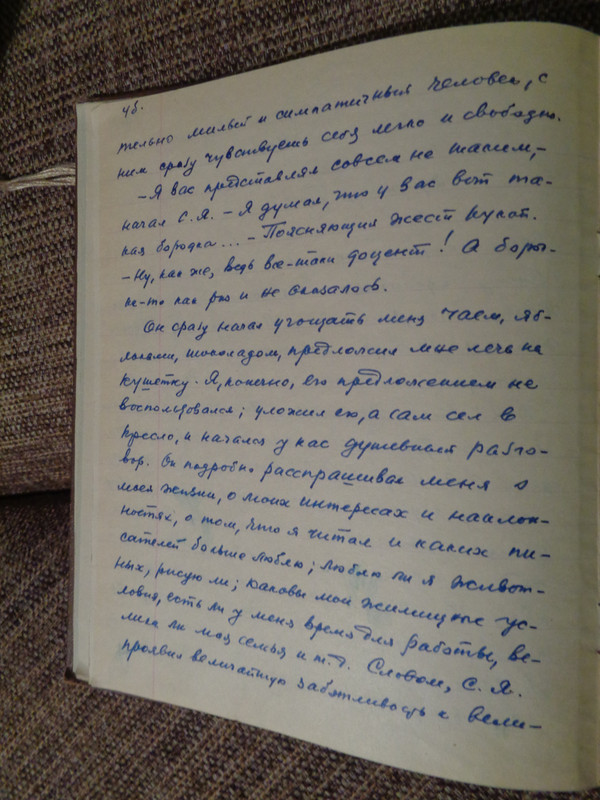 48.
тельно милый и симпатичный человек, с
ним сразу чувствуешь себя легко и свободно.
– Я вас представлял совсем не таким, –
начал С. Я. – Я думал, что у вас вот та-
кая бородка... – Поясняющий жест рукой.
– Ну, как же, ведь все-таки доцент! А бород-
ки-то как раз и не оказалось.
Он сразу начал угощать меня чаем, яб-
локами, шоколадом, предложил мне лечь на
кушетку. Я, конечно, его предложением не
воспользовался; уложил его, а сам сел в
кресло, и начался у нас душевный разго-
вор. Он подробно расспрашивал меня о
моей жизни, о моих интересах и наклон-
ностях, о том, что я читал и каких пи-
сателей больше люблю; люблю ли я живот-
ных, рисую ли; каковы мои жилищные ус-
ловия, есть ли у меня время для работы, ве-
лика ли моя семья и т.д. Словом, С. Я.
проявил величайшую заботливость и вели-